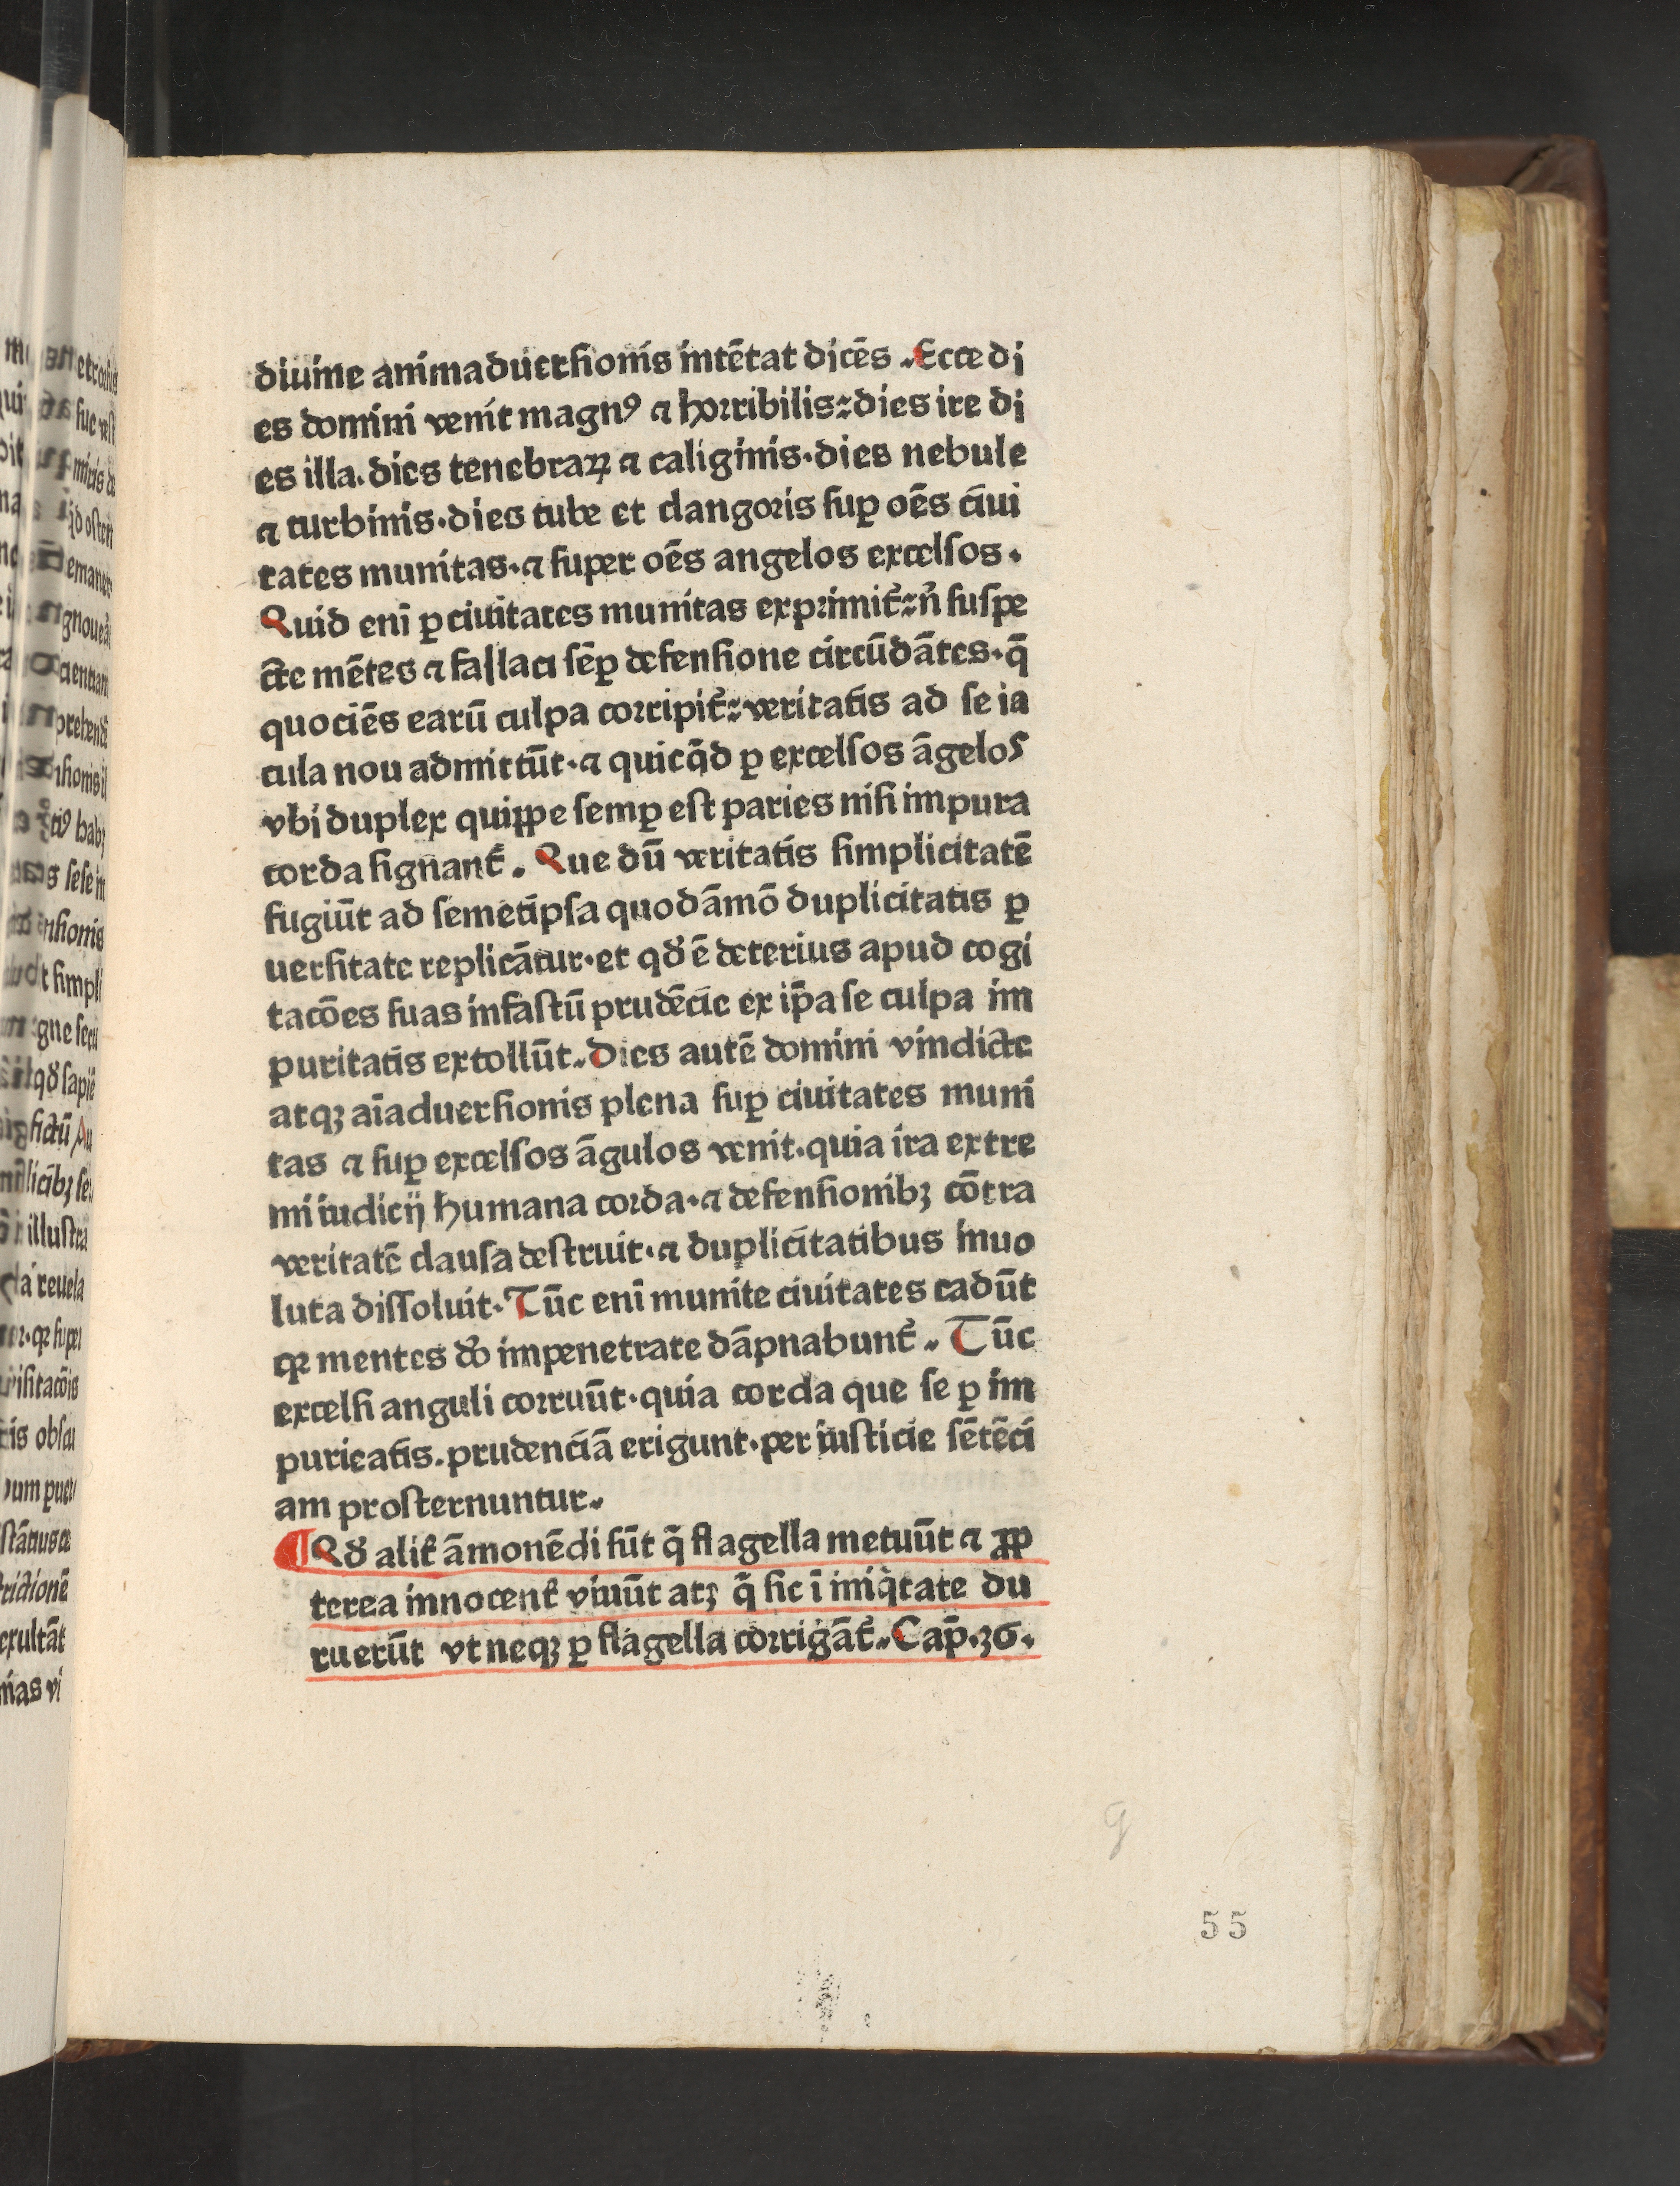 diuine animaduersionis intētat dicēs. Ecce di
es domini venit magnꝰ ⁊ horribilis: dies ire di
es illa. dies tenebraꝝ ⁊ caliginis·dies nebule
⁊ turbinis·dies tube et clangoris suꝑ oēs ciui
tates munitas·⁊ super oēs angelos excelsos·
Quid eni̅ ꝑ ciuitates munitas exprimit᷑: n̅ suspe
cte mētes ⁊ fallaci sēꝑ defensione circūdātes·q̄
quociēs earū culpa corripit᷑: veritatis ad se ia
cula nou admittūt·⁊ quicq̄d ꝑ excelsos āgelos
vbi duplex quippe semꝑ est paries nisi impura
corda signant᷑. Que dū veritatis simplicitatē
fugiūt ad semetipsa quodāmō duplicitatis ꝑ
uersitate replicātur·et qđ ē deterius apud cogi
tacōes suas infastū prudēcie ex ip̄a se culpa im
puritatis extollūt. Dies autē domini vindicte
atqꝫ aīaduersionis plena suꝑ ciuitates muni
tas ⁊ suꝑ excelsos āgulos venit·quia ira extre
mi iudicij humana corda·⁊ defensionibꝫ cōtra
veritatē clausa destruit·⁊ duplicitatibus inuo
luta dissoluit· Tūc eni̅ munite ciuitates cadūt
qꝛ mentes do impenetrate dāpnabunt᷑. Tūc
excelsi anguli corruūt·quia corda que se ꝑ im
puricatis.prudenciā erigunt·per iusticie sētēci
am prosternuntur.
¶ Qđ alit᷑ āmonēdi sūt q̄ flagella metuūt ⁊ ꝓp
terea innocent᷑ viuūt atꝫ q̄ sic ī iniq̇tate du
ruerūt vt neqꝫ ꝑ flagella corrigāt᷑. Cap̄.36.
g
55